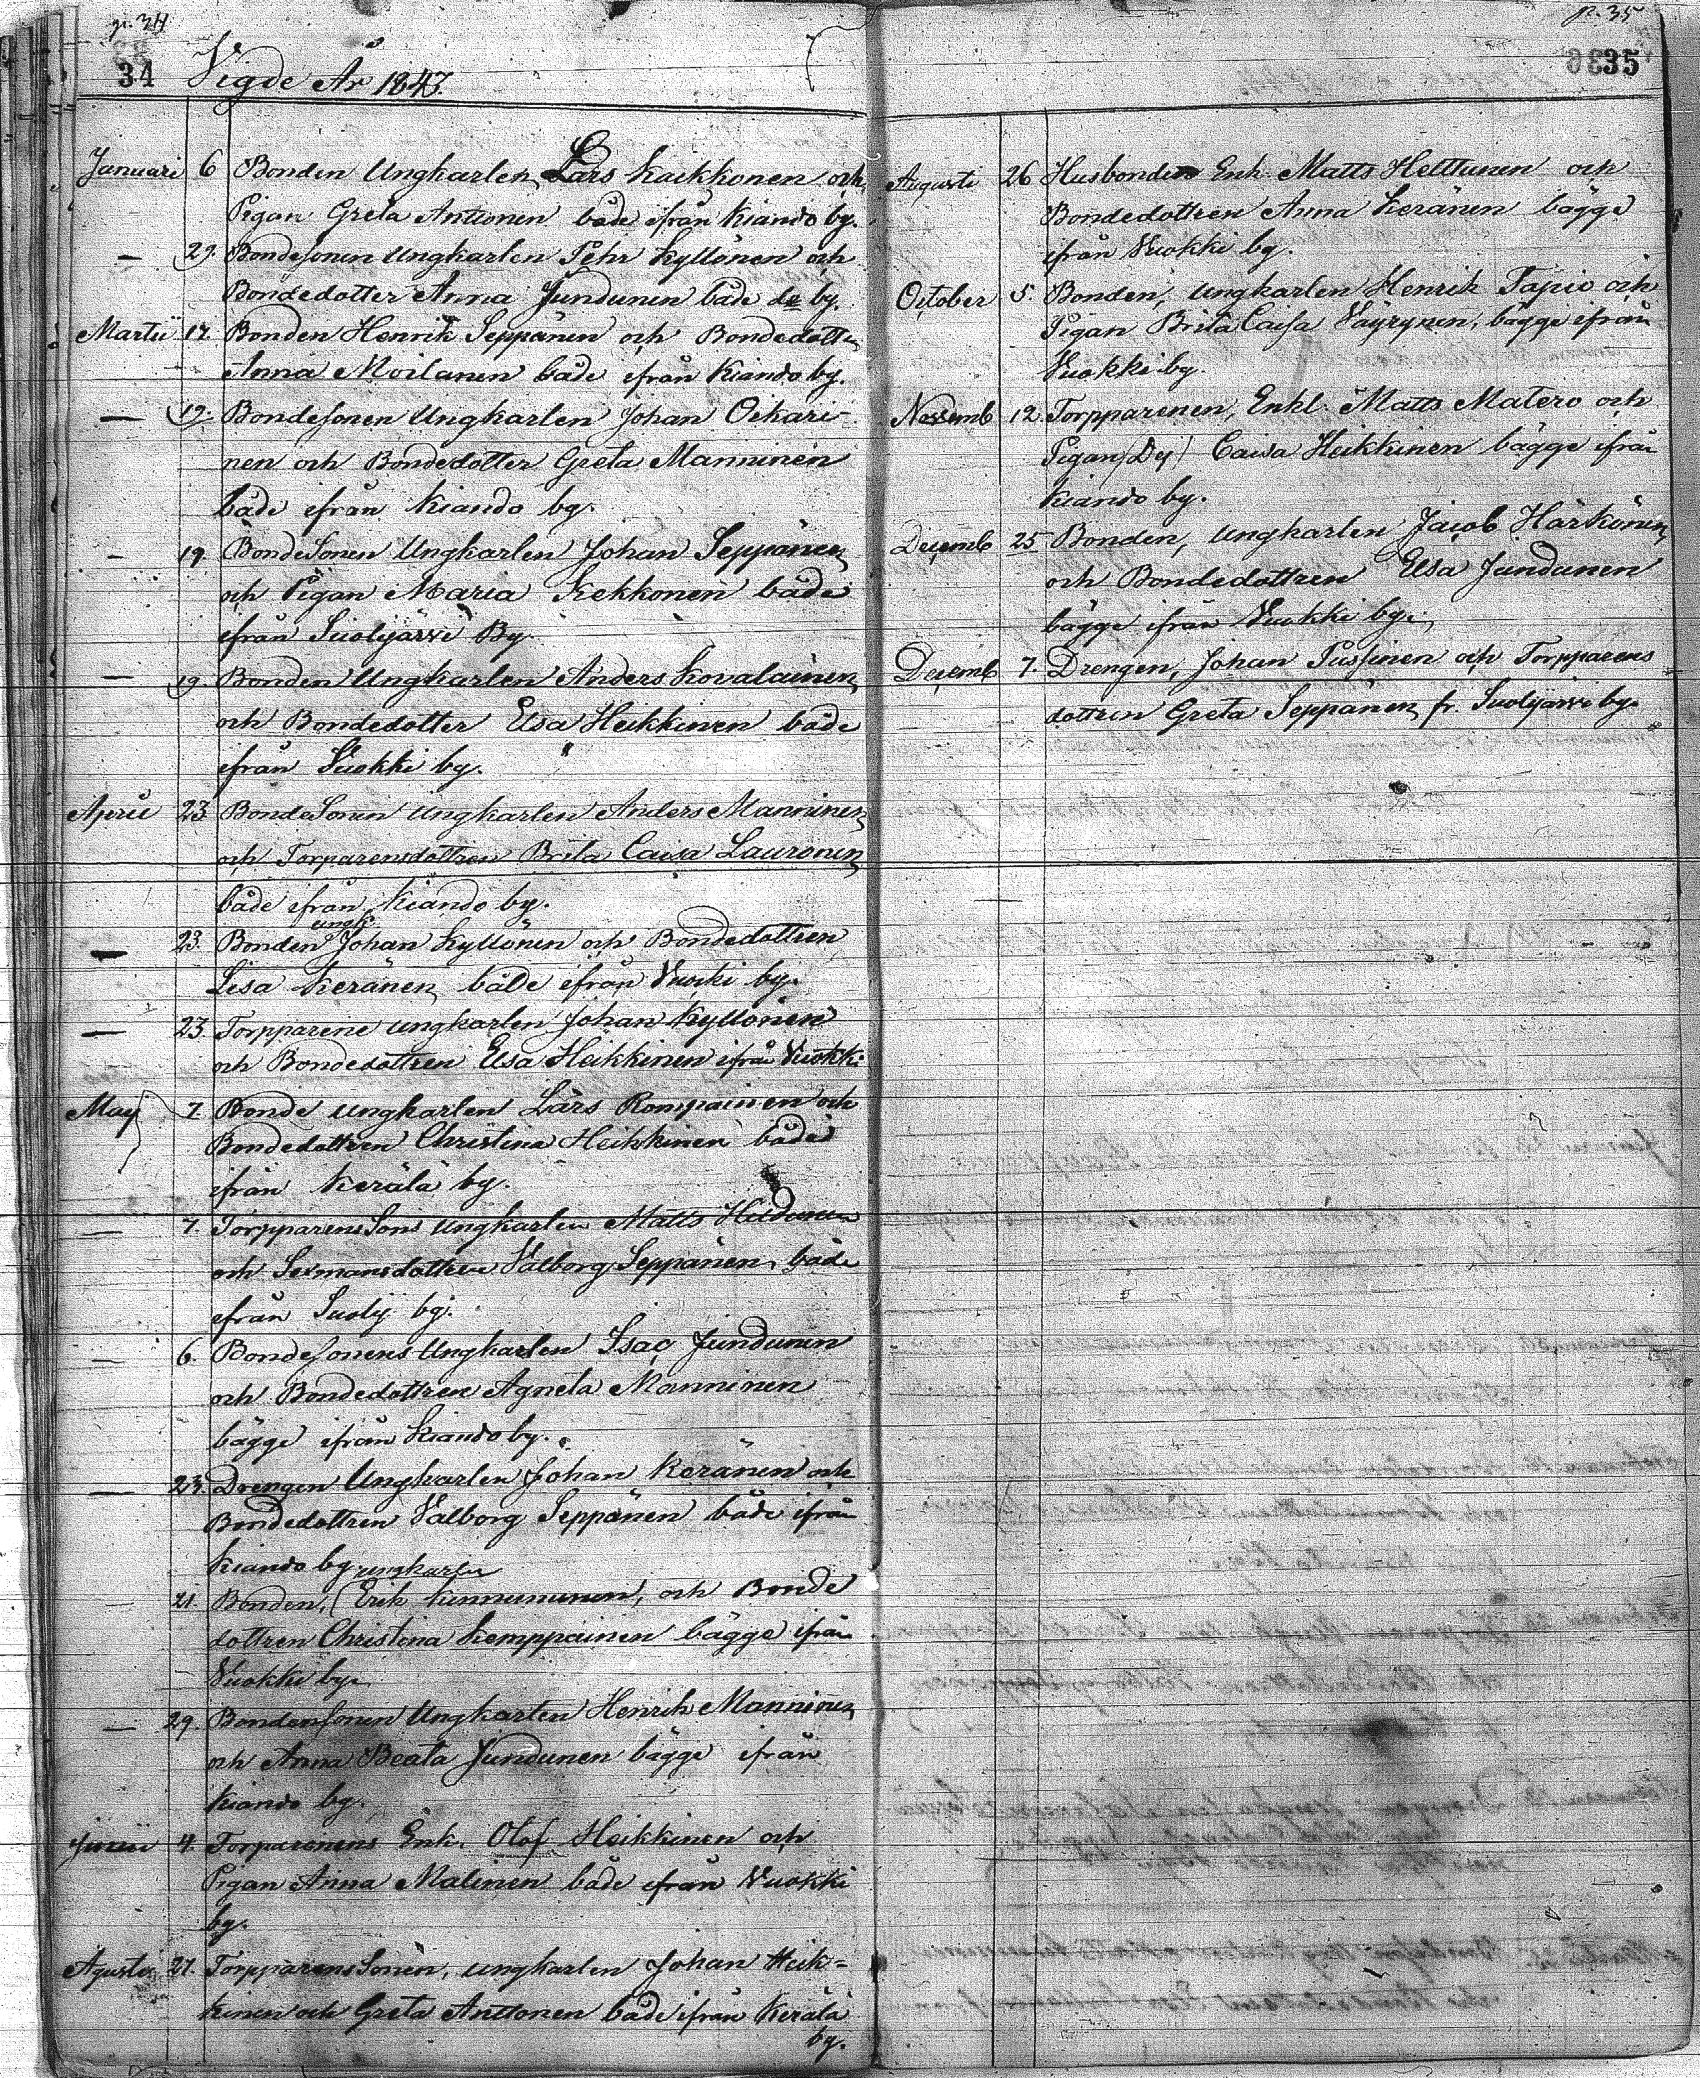 p. 34
34
Vigde År 1843.
Januari 6 Bonden Ungkarlen Lars Kaikkonen och
Pigan Greta Anttonen både ifrån Kiando by.
— 29. Bondesonen Ungkarlen Pehr Kyllönen och
Bondedotter Anna Jundunen både de by.
Martii 17. Bonden Henrik Seppänen och Bondedotter
Anna Moilanen både ifrån Kiando by.
— 19. Bondesonen Ungkarlen Johan Oikari-
nen och Bondedotter Greta Manninen
både ifrån Kiando by.
— 19. BondeSonen Ungkarlen Johan Seppänen
och Pigan Maria Kekkonen både
ifrån Suolijärvi By
— 19. Bonden Ungkarlen Anders Kovalainen
och Bondedotter Elsa Heikkinen både
ifrån Vuokki by.
April 23 BondeSonen Ungkarlen Anders Manninen
och Torparensdottren Brita Caisa Lauronen
både ifrån Kiando by.
ungk.
— 23. Bonden Johan Kyllönen och Bondedottren
Lisa Keränen både ifrån Vuoki by.
— 23. Torpparene ungkarlen Johan Kyllönen
och Bondedottren Elsa Heikkinen ifrån Vuokki
May 7. Bonde ungkarlen Lars Rompainen och
Bondedottren Christina Heikkinen både
ifrån Kerälä by.
— 7. TorpparensSons ungkarlen Matts
och Sexmansdottren Valborg Seppänen både
ifrån Suolij by.
— 6. Bondesonens Ungkarlen Isac Jundunen
och Bondedottren Agneta Manninen
bägge ifrån Kiando by.
— 23. Drengen Ungkarlen Johan Keränen och
Bondedottren Valborg Seppänen både ifrån
Kiando by.
ungkarlen
— 21. Bonden, (Erik Kinnunen, och Bonde
dottren Christina Kemppainen bägge ifrån
Vuokki by.
— 29. BondenSonen Ungkarlen Henrik Manninen
och Anna Beata Jundunen bägge ifrån
Kiando by.
Junii 4. Torparenens Enk. Olof Heikkinen och
Pigan Anna Malinen både ifrån Vuokki
by.
Agusti 27. TorpparensSonen, ungkarlen Johan Heik=
kinen och Greta Anttonen både ifrån Kerälä
by.
p. 35
35
Augusti 26 Husbonden Enk. Matts Helttunen och
Bondedottren Anna Keränen bägge
ifrån Vuokki by.
October 5 Bonden, ungkarlen Henrik Tapio och
Pigan Brita Caisa Väyrynen, bägge ifrån
Vuokki by.
Novemb 12. Torpparenen, Enkl. Matts Matero och
Pigan (Dej) Caisa Heikkinen bägge ifrån
Kiando by.
Decemb 25 Bonden, ungkarlen Jacob Härkönen
och Bondedottren Elsa Jundunen
bägge ifrån Vuokki by.
Decemb 7. Drengen, Johan Pussinen och Torpparens
dottren Greta Seppänen fr. Suolijärvi by.